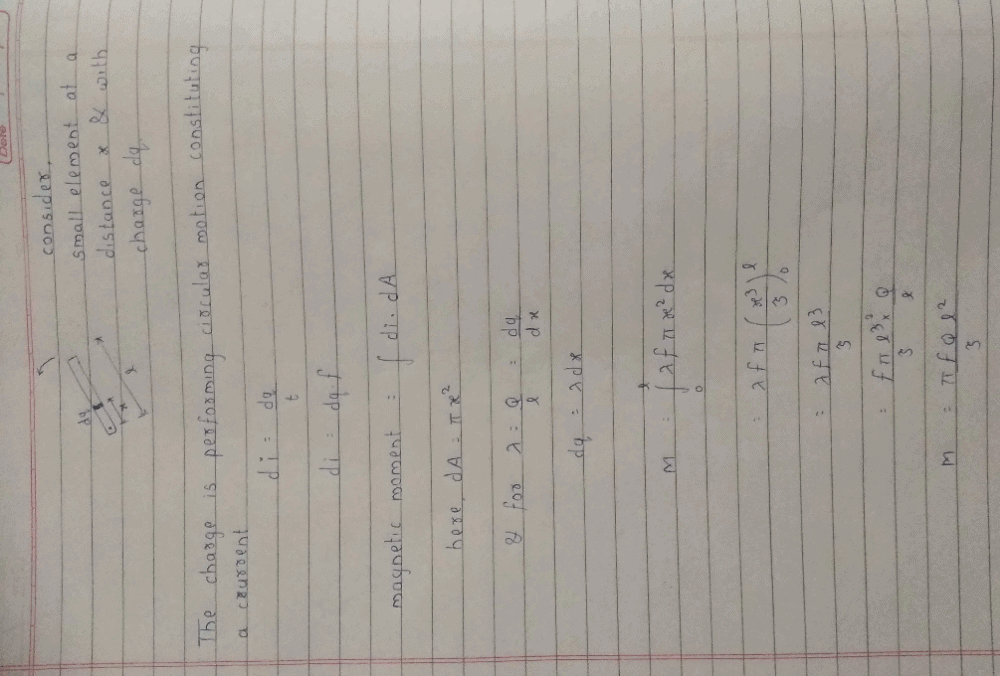 Date
consider,
small element at a
distance x & with
charge dq
dq
x
l
The charge is performing circular motion constituting
a crurrent
di = dq/t
di = dq f
magnetic moment = ∫ di. dA
here, dA = πx²
& for λ = Q/l = dq/dx
dq = λdx
M = ∫₀ˡ λ f π x² dx
= λ f π (x³/3)₀ˡ
= λ f π l³/3
= f π l³² × Q / 3 l
M = π f Q l²/3